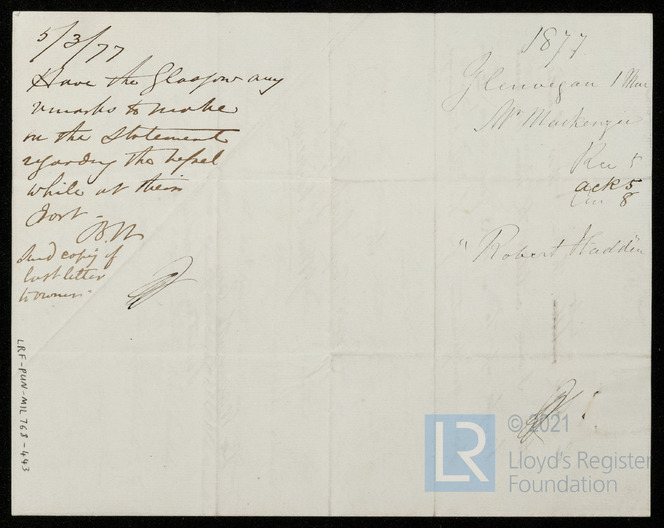 5/3/77
Have the Glasgow any
remarks to make
on the Statement
regarding the vessel
while at their
Port -
Send copy of
last letter
to owners.
LRF-PUN-MIL768-443
1877
1 Mar
Mr Mackenzie
Rec 5
ack 5
8
"Robert Hadden"
LR
© 2021
Lloyd's Register
Foundation